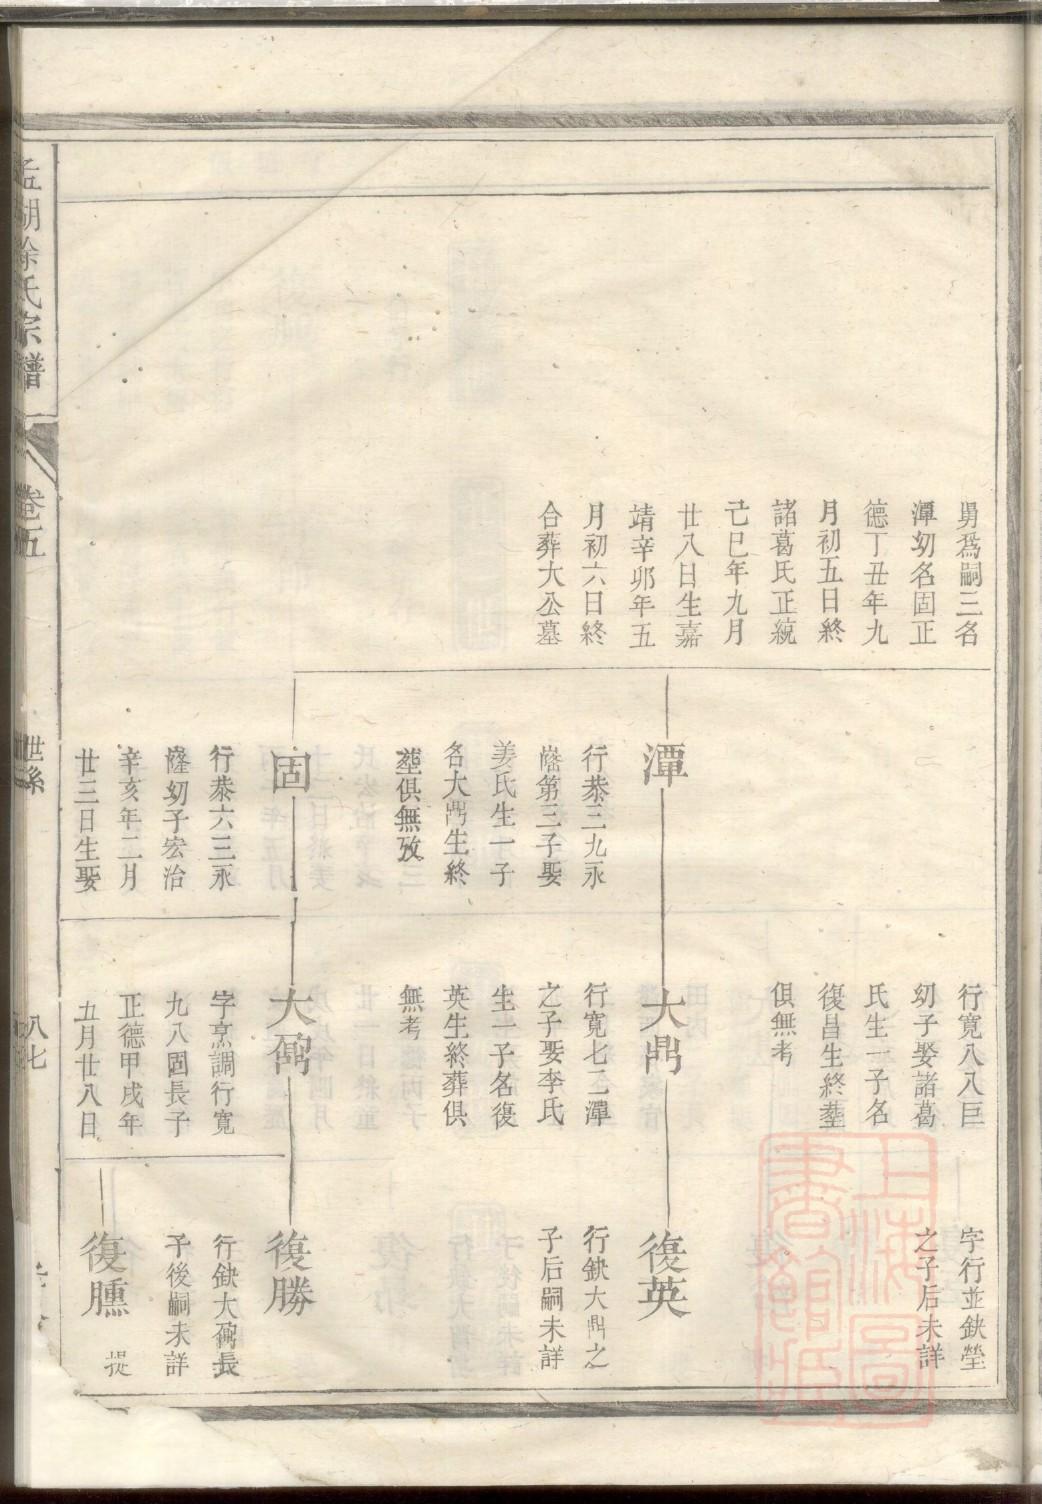 舅爲嗣三名
潭㓜名固正
德丁丑年九
月初五日終
諸葛氏正統
己巳年九月
廿八日生嘉
靖辛卯年五
月初六日終
合葬大公墓
潭
行恭三九永
第三子娶
姜氏生一子
名大鼎生終
塟俱無攷
固
行恭六三永
隆㓜子宏治
辛亥年二月
廿三日生娶
行寬八入巨
㓜子娶諸葛
氏生一子名
復昌生終塟
俱無考
大鼎
行寬七二潭
之子娶李氏
生一子名復
英生終葬俱
無考
大鼐
字烹調行寬
九八固長子
正德甲戌年
五月廿八日
字行並缺瑩
之子后未詳
復英
行缺大鼎之
子后嗣未詳
復勝
行缺大鼐長
子後嗣未詳
復臐
提
孟湖徐氏宗譜
卷五
世系
八七
上海圖書館藏